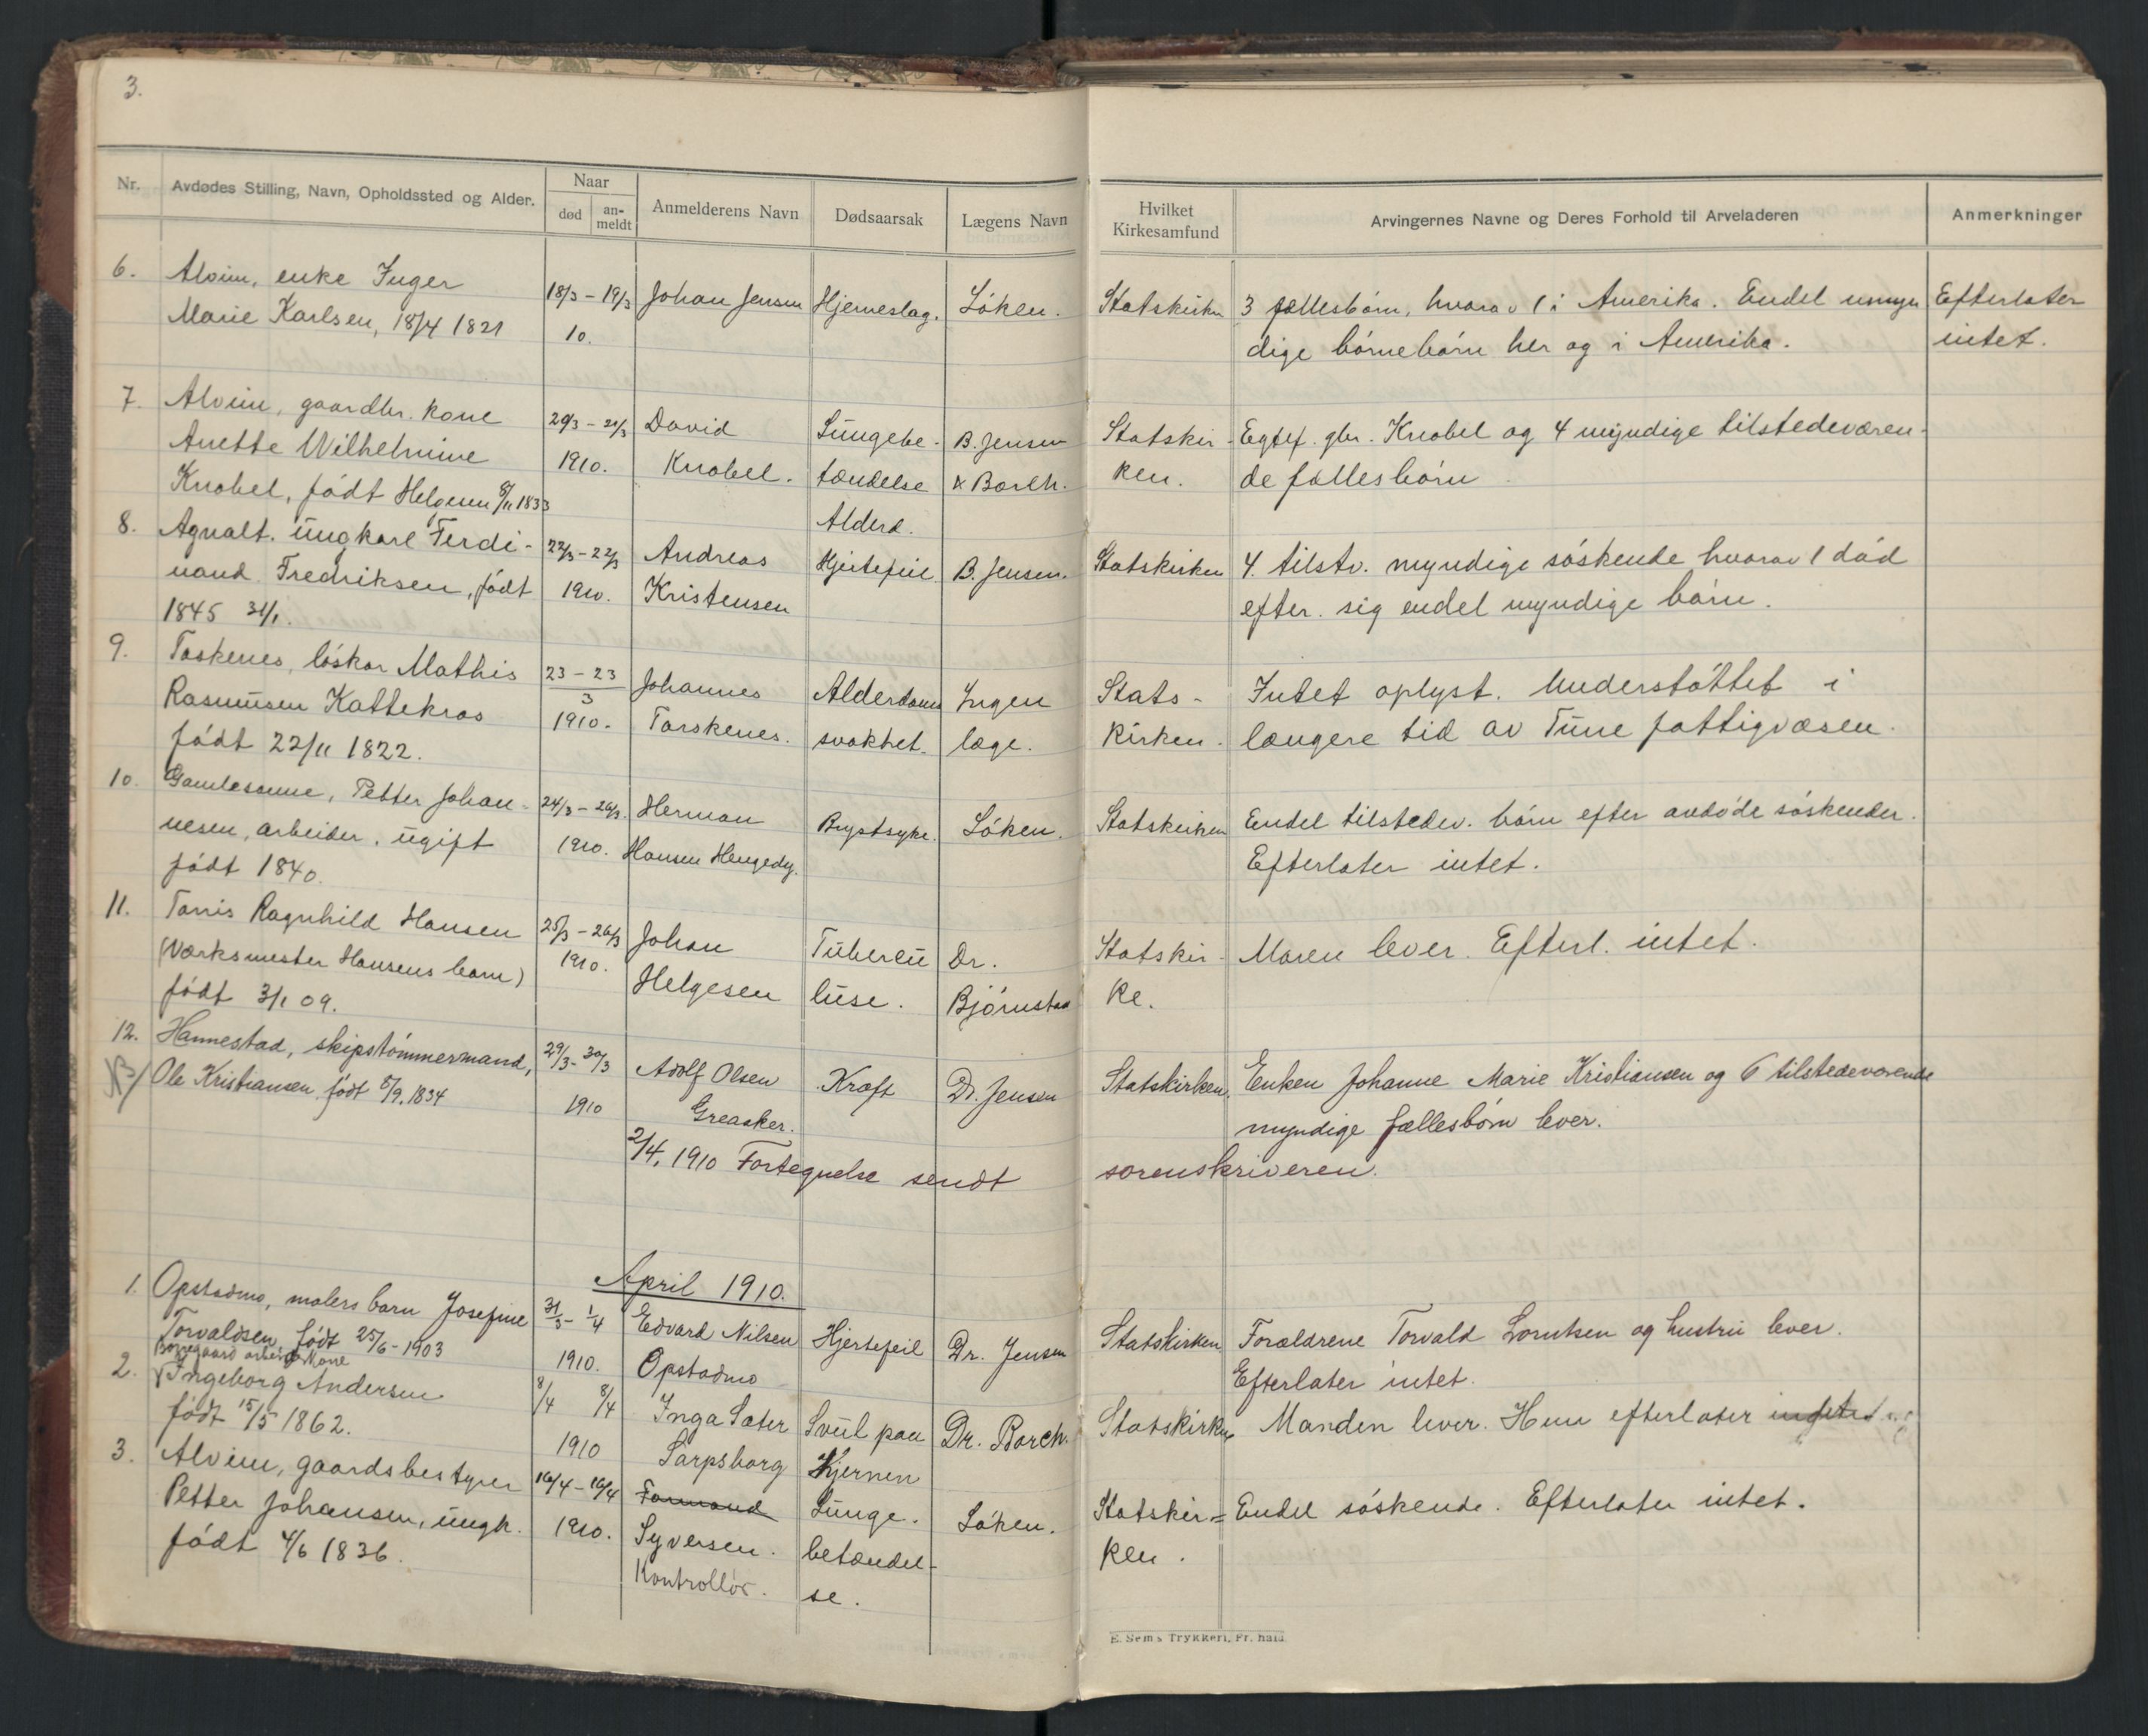 3.
Nr. Avdødes Stilling, Navn, Opholdssted og Alder. Naar død an-meldt Anmelderens Navn Dødsaarsak Lægens Navn Hvilket Kirkesamfund Arvingernes Navne og Deres Forhold til Arveladeren Anmerkninger
6. Alvim, enke Inger 18/3 – 19/3 Johan Jensen Hjerneslag. Løken. Statskirken 3 fællesbørn, hvorav 1 i Amerika. Endel umyn Efterlater
Marie Karlsen, 18/4 1821 10. dige børnebørn her og i Amerika. intet.
7. Alvim, gaardbr. kone 20/3 – 21/3 David Lungebe- B. Jensen Statskir- Egtef. gbr. Knobel og 4 myndige tilstedeværen-
Anette Wilhelmine 1910. Knobel. tændelse & Borch. ken. de fællesbørn
Knobel, født Helgesen 8/11 1833 Alderd.
8. Agnalt. ungkarl Ferdi- 22/3 – 22/3 Andreas Hjertefeil B. Jensen. Statskirken 4. tilstv. myndige søskende hvorav 1 død
nand Fredriksen, født 1910. Kristensen efter. sig endel myndige børn.
1845 31/1.
9. Taskenes, løskar Mathis 23 – 23 Johannes Alderdoms Ingen Stats- Intet oplyst. Understøttet i
Rasmusen Kattekras 3 1910. Torskenes. svakhet. læge. kirken. længere tid av Tune fattigvæsen.
født 22/11 1822.
10. Gamlesanne, Petter Johan- 24/3 – 26/3. Herman Brystsyke. Løken. Statskirken Endel tilstedev. børn efter avdøde søskender.
nesen, arbeider, ugift 1910. Hansen Hengedy. Efterlater intet.
født 1840.
11. Ragnhild Hansen 25/3 – 26/3 Johan Tubercu Dr. Statskir- Moren lever. Efterl. intet.
(Værksmester Hansens barn) 1910. Helgesen luse. Bjørnstad ke.
født 3/1 09.
12. Hannestad, skipstømmermand, 29/3 – 30/3 Adolf Olsen Kræft Dr. Jensen Statskirken. Enken Johanne Marie Kristiansen og 6 tilstedeværende
Ole Kristiansen født 8/9. 1834 1910 Greaaker. myndige fællesbørn lever.
2/4. 1910 Fortegnelse sendt sorenskriveren.
April 1910.
1. Opstadmo, malers barn Josefine 31/3 – 1/4 Edvard Nilsen Hjertefeil Dr. Jensen Statskirken Forældrene Torvald Lorntsen og hustru lever.
Torvaldsen født 25/6 – 1903 1910. Opstadmo Efterlater intet.
Borregaard arbeid. Kone
2. Ingeborg Andersen 8/4 8/4 Inga Sater Svul paa Dr. Borch. Statskirken Manden lever. Hun efterlater intet
født 15/5 1862. 1910 Sarpsborg Hjernen
3. Alvim, gaardsbestyrer 16/4 – 16/4 Formand Lunge. Løken. Statskir= Endel søskende. Efterlater intet.
Petter Johansen, ungk. 1910. Syversen. betændel- ken.
født 4/6 1836. Kontrollør. se.
E. Sem's Trykkeri, Fr. hald.